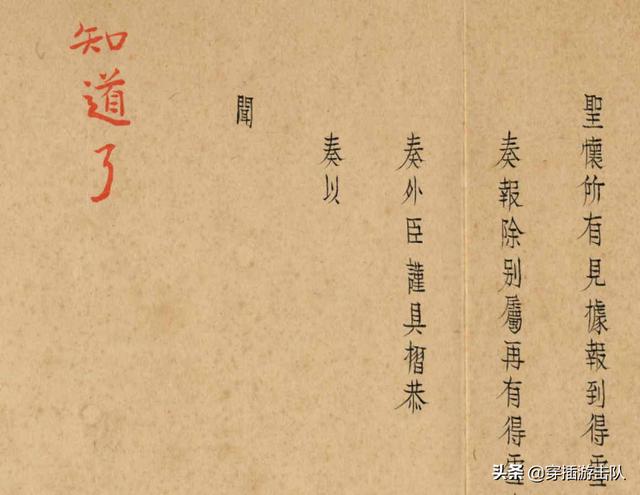 聖懷所有見據報到得雪
奏報除别屬再有得雪
奏外臣謹具摺恭
奏以
聞
知道了
头条 @穿插游击队